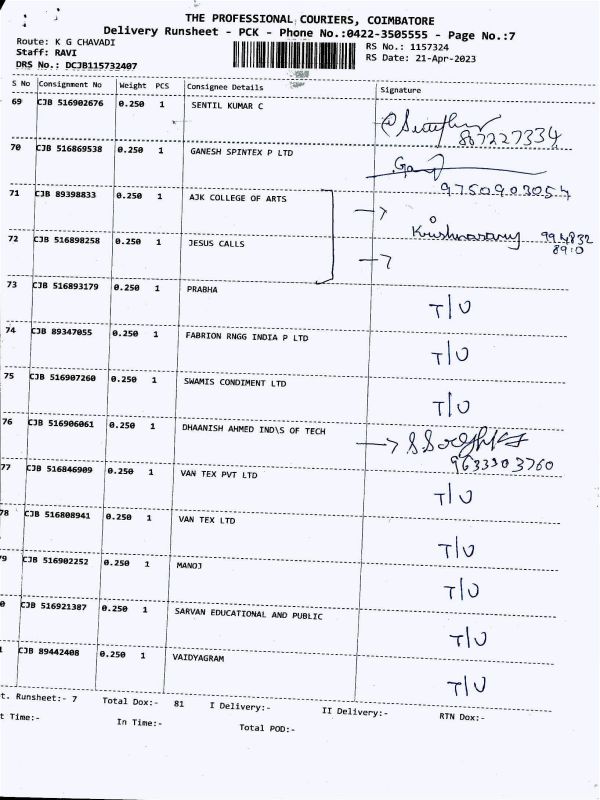 THE PROFESSIONAL COURIERS, COIMBATORE
Delivery Runsheet - PCK - Phone No.:0422-3505555 - Page No.:7
Route: K G CHAVADI
RS No.: 1157324
Staff: RAVI
RS Date: 21-Apr-2023
DRS No.: DCJB115732407
S No Consignment No Weight PCS Consignee Details Signature
69 CJB 516902676 0.250 1 SENTIL KUMAR C
867227334
70 CJB 516869538 0.250 1 GANESH SPINTEX P LTD
9750903054
71 CJB 89398833 0.250 1 AJK COLLEGE OF ARTS
Krishnasamy 994832
8910
72 CJB 516898258 0.250 1 JESUS CALLS
73 CJB 516893179 0.250 1 PRABHA T/U
74 CJB 89347055 0.250 1 FABRION RNGG INDIA P LTD T/U
75 CJB 516907260 0.250 1 SWAMIS CONDIMENT LTD T/U
76 CJB 516906061 0.250 1 DHAANISH AHMED IND\S OF TECH
9633303760
77 CJB 516846909 0.250 1 VAN TEX PVT LTD T/U
78 CJB 516808941 0.250 1 VAN TEX LTD T/U
9 CJB 516902252 0.250 1 MANOJ T/U
0 CJB 516921387 0.250 1 SARVAN EDUCATIONAL AND PUBLIC T/U
1 CJB 89442408 0.250 1 VAIDYAGRAM T/U
t. Runsheet:- 7 Total Dox:- 81 I Delivery:- II Delivery:- RTN Dox:-
t Time:- In Time:- Total POD:-